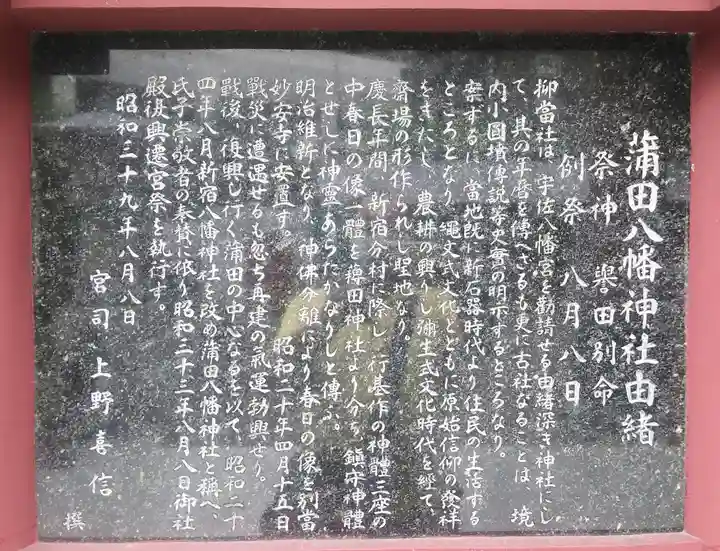 蒲田八幡神社由緒
祭神　譽田別命
例祭　八月八日
抑當社は、宇佐八幡宮を勸請せる由緒深き神社にし
て、其の年暦を傳へざるも更に古社なることは、境
内小圓墳傳説等史實の明示するところなり。
案ずるに、當地既に新石器時代より住民の生活する
ところとなり、繩文式文化とともに原始信仰の發祥
をきたし、農耕の興りし彌生式文化時代を經て、
齋場の形作られし聖地なり。
慶長年間、新宿分村に際し、行基作の神體三座の
中春日の像一體を薭田神社より分ち、鎭守神體
とせしに神靈あらたかなりしと傳ふ。
明治維新となり、神佛分離により春日の像を別當
妙安寺に安置す。　昭和二十年四月十五日
戰災に遭遇せるも忽ち再建の氣運勃興せり。
戰後、復興し行く蒲田の中心なるを以て、昭和二十
四年八月新宿八幡神社を改め蒲田八幡神社と稱へ、
氏子崇敬者の奉賛に依り昭和三十三年八月八日御社
殿復興遷宮祭を執行す。
昭和三十九年八月八日
宮司　上野喜信　撰